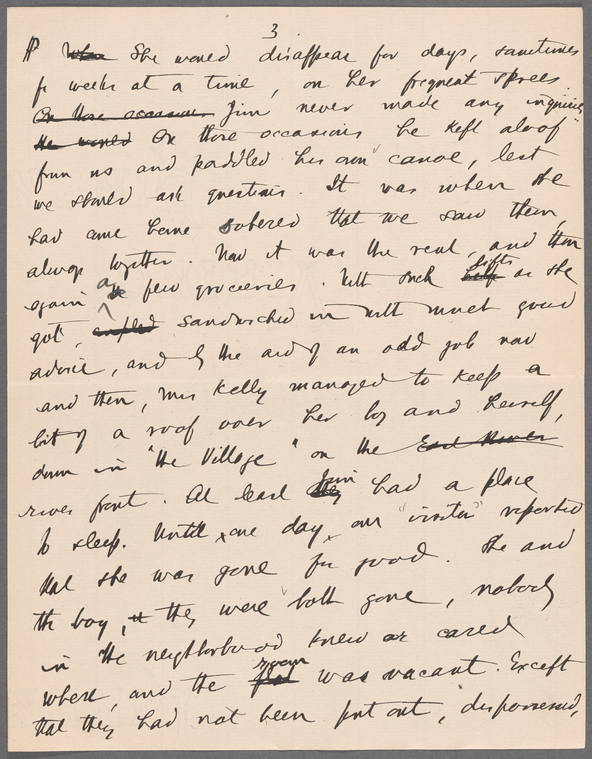 3
¶ When She would disappear for days, sometimes
for weeks at a time, on her frequent sprees.
On those occasions Jim never made any inquiries
He would On those occasions he kept aloof
from us and paddled his own canoe, lest
we should ask questions. It was when she
had come home sobered that we saw them,
always together. Now it was the rent, and then
again a few groceries. With such lifts as she
got, sandwiched in with much good
advice, and by the aid of an odd job now
and then, Mrs Kelly managed to keep a
bit of a roof over her boy and herself,
down in "the Village" on the East River
river front. At least Jim had a place
to sleep. Until one day our "visitor" reported
that she was gone for good. She and
the boy, they were both gone, nobody
in the neighborhood knew or cared
where, and the room flat was vacant. Except
that they had not been put out, dispossessed,